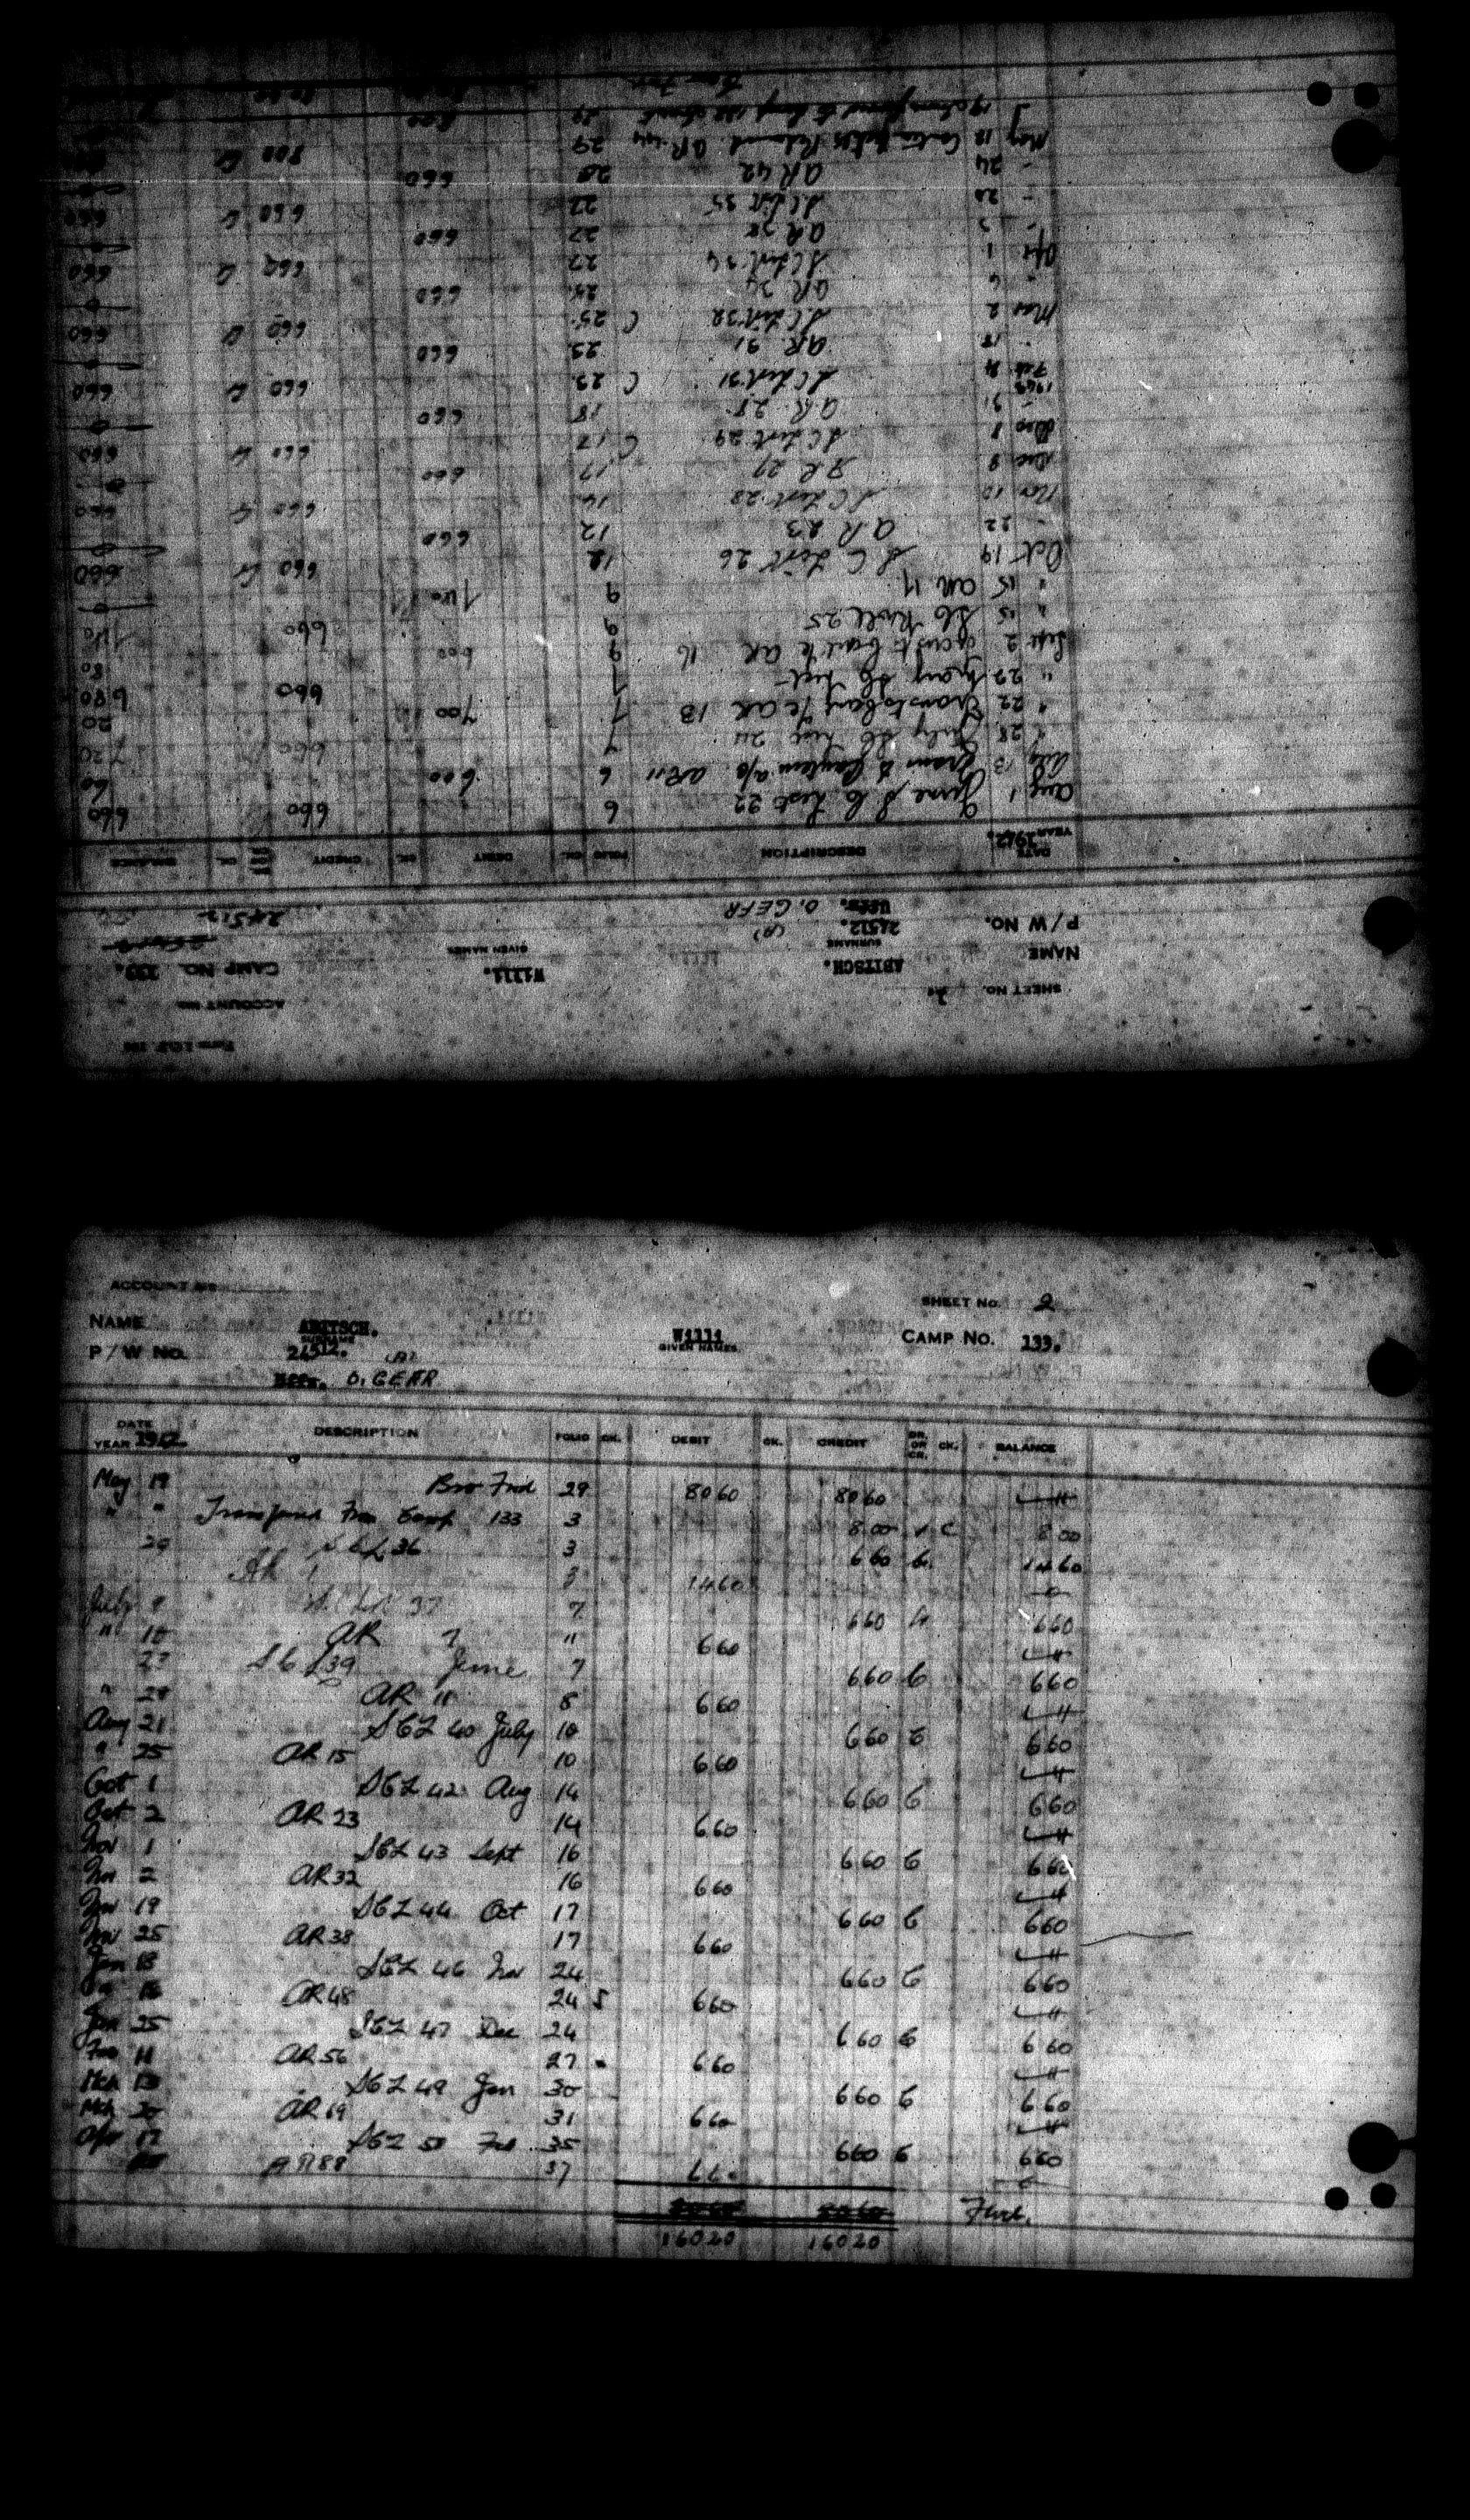 Form I.O.P. 
ACCOUNT NO.
SHEET NO.
NAME ABITSCH. Willi. CAMP NO. 133.
SURNAME GIVEN NAMES
P/W NO. 24512. (A) 24512
Uffz. O. GEFR
DATE YEAR 1942. DESCRIPTION FOLIO CK. DEBIT CK. CREDIT DR. OR CR. CK. BALANCE
Aug 1 June S C List 22 6 660 660
Aug 13 Trans to Canteen a/c AR 11 6 600 60
" 28 July SC List 24 7 660 720
" 22 Trans to Cant a/c AR 13 7 700 20
" 29 SC List 7 660 680
Sept 2 Trans to Cant a/c AR 16 9 600 80
" 15 SC Roll 25 9 660 740
" 15 AR 17 9 740
Oct 19 S C List 26 12 660 Cr 660
" 22 AR 23 12 660
Nov 10 S C List 28 14 660 Cr 660
Dec 9 AR 27 17 660
Dec 8 S C List 29 17 C 660 Cr 660
" 31 AR 28 18 660
1943
Feb 4 S C List 31 23 C 660 Cr 660
" 18 AR 31 23 660
Mar 2 S C List 32 25 C 660 Cr 660
" 6 AR 34 25 660
Apr 1 S C List 34 27 660 Cr 660
AR 38 27 660
" 20 S C List 35 27 660 Cr 660
" 24 AR 42 28 660
May 12 AR 44 29 800 Cr
29
ACCOUNT NO.
SHEET NO. 2
NAME ABITSCH. Willi CAMP NO. 133.
SURNAME GIVEN NAMES
P/W NO. 24512. (A)
Uffz. O. GEFR
DATE YEAR 1942. DESCRIPTION FOLIO CK. DEBIT CK. CREDIT DR. OR CR. CK. BALANCE
May 19 Bro Fwd 29 8060 8060
" " Transferred From Camp 133 3 800 C 800
29 S C L 36 3 660 1460
AR 1 3 1460
July 9 S.C List 37 7 660 660
" 10 AR 7 " 660
23 S C L 39 June 7 660 C 660
" 29 AR 11 8 660
Aug 21 SCL 40 July 10 660 C 660
" 25 AR 15 10 660
Oct 1 SCL 42 Aug 14 660 C 660
Oct 2 AR 23 14 660
Nov 1 SCL 43 Sept 16 660 C 660
Nov 2 AR 32 16 660
Nov 19 SCL 44 Oct 17 660 C 660
Nov 25 AR 38 17 660
Jan 18 SCL 46 Nov 24 660 C 660
AR 48 24 660
Jan 25 SCL 47 Dec 24 660 C 660
Feb 11 AR 56 27 660
Mch 13 SCL 49 Jan 30 660 C 660
Mch 20 AR 69 31 660
Apr 17 SCL 50 Feb 35 660 C 660
AR 88 37 660
Fwd.
16020 16020